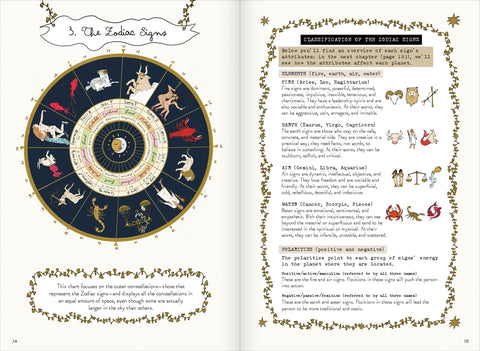 3. The Zodiac Signs
This chart focuses on the outer constellations—those that
represent the Zodiac signs—and displays all the constellations in
an equal amount of space, even though some are actually
larger in the sky than others.
14
CLASSIFICATION OF THE ZODIAC SIGNS
Below you'll find an overview of each sign's
attributes. In the next chapter (page 101), we'll
see how the attributes affect each planet.
ELEMENTS (fire, earth, air, water)
FIRE (Aries, Leo, Sagittarius)
Fire signs are dominant, powerful, determined,
passionate, impulsive, irascible, tenacious, and
charismatic. They have a leadership spirit and are
also sociable and enthusiastic. At their worst, they can
be aggressive, vain, arrogant, and irritable.
EARTH (Taurus, Virgo, Capricorn)
The earth signs are those who may on the safe,
concrete, and material side. They are creative in a
practical way; they need facts, not words, to
believe in something. At their worst, they can be
stubborn, selfish, and critical.
AIR (Gemini, Libra, Aquarius)
Air signs are dynamic, intellectual, objective, and
creative. They love freedom and are sociable and
friendly. At their worst, they can be superficial,
cold, rebellious, deceitful, and indecisive.
WATER (Cancer, Scorpio, Pisces)
Water signs are emotional, sentimental, and
empathetic. Rich in their intuitiveness, they can see
beyond the material or superficial and tend to be
interested in the spiritual or mystical. At their
worst, they can be infantile, unstable, and sustained.
POLARITIES (positive and negative)
The polarities point to each group of signs' energy
in the planet where they are located.
Positive/active/masculine (referred to by all three names)
These are the fire and air signs. Positions in these signs will push the person
into action.
Negative/passive/feminine (referred to by all three names)
These are the earth and water signs. Positions in these signs will lead the
person to be more traditional and static.
15